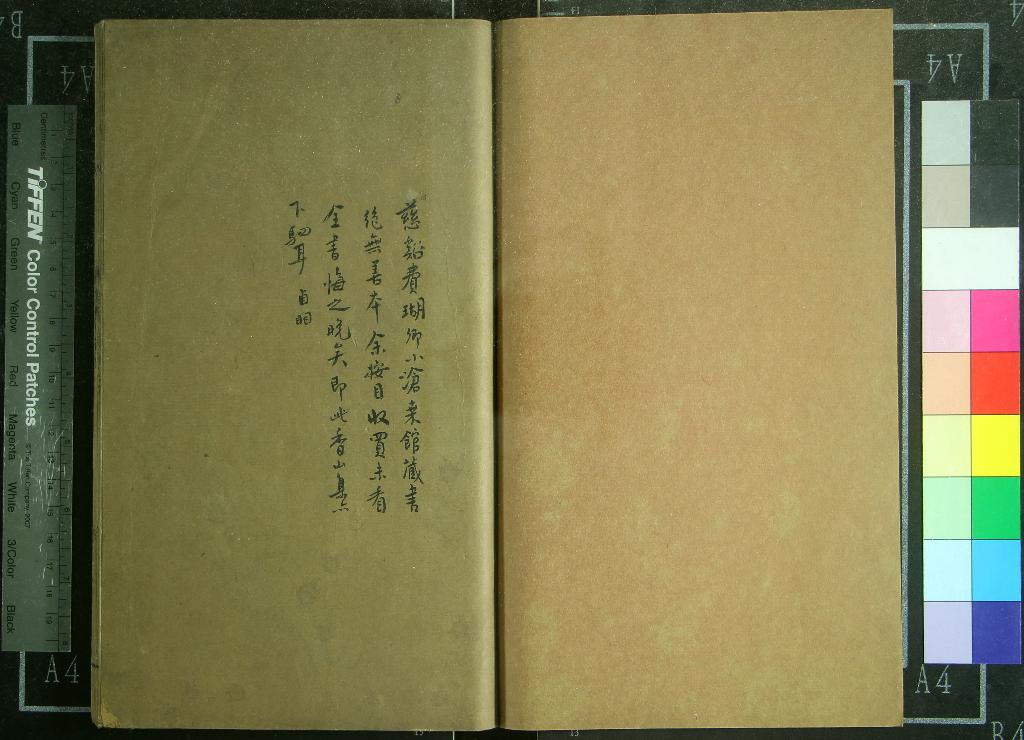 慈谿費瑚卿小滄桑館藏書
絶無善本余按目收買未看
全書悔之晚矣即此香山集亦
下駟耳 貞明
Centimetres
TIFFEN Color Control Patches
© The Tiffen Company, 2007
Blue Cyan Green Yellow Red Magenta White 3/Color Black
A4
A4
A4
A4
A4